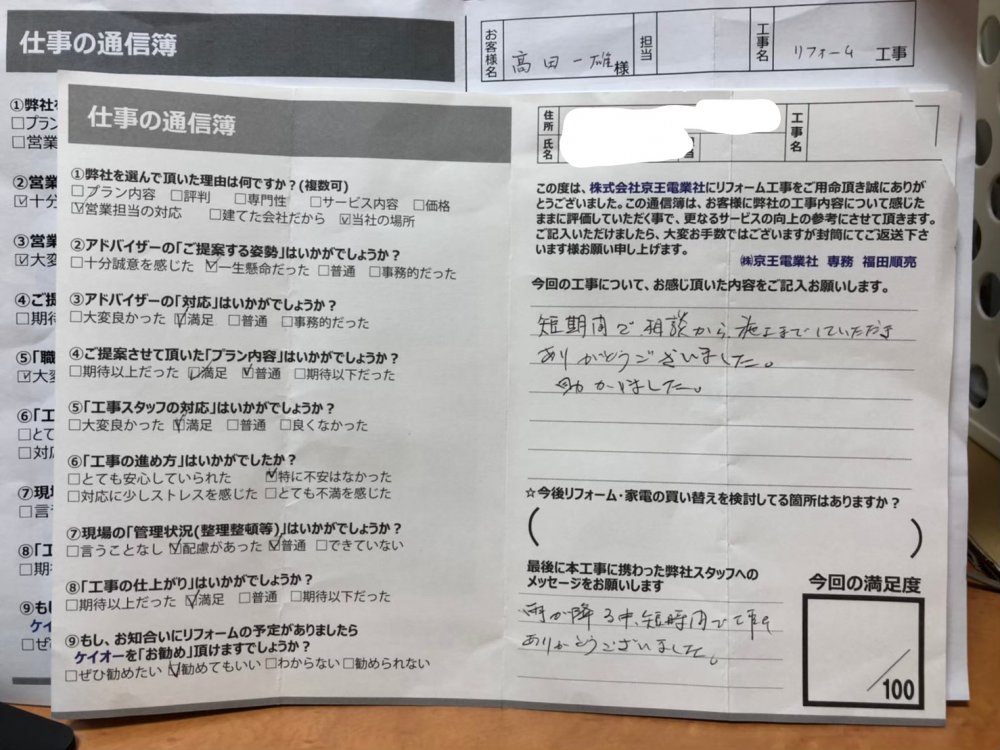 仕事の通信簿
お客様名 高田一雄様 担当 工事名 リフォーム 工事
①弊社を
□プラン
□営業
②営業
☑十分
③営業
☑大変
④ご提
□期待
⑤「職
☑大変
⑥「工
□とて
□対応
⑦現場
□言う
⑧「工
□期待
⑨もし
ケイ
□ぜひ
仕事の通信簿
①弊社を選んで頂いた理由は何ですか？(複数可)
□プラン内容 □評判 □専門性 □サービス内容 □価格
☑営業担当の対応 □建てた会社だから ☑当社の場所
②アドバイザーの「ご提案する姿勢」はいかがでしょうか？
□十分誠意を感じた ☑一生懸命だった □普通 □事務的だった
③アドバイザーの「対応」はいかがでしょうか？
□大変良かった ☑満足 □普通 □事務的だった
④ご提案させて頂いた「プラン内容」はいかがでしょうか？
□期待以上だった ☑満足 ☑普通 □期待以下だった
⑤「工事スタッフの対応」はいかがでしょうか？
□大変良かった ☑満足 □普通 □良くなかった
⑥「工事の進め方」はいかがでしたか？
□とても安心していられた ☑特に不安はなかった
□対応に少しストレスを感じた □とても不満を感じた
⑦現場の「管理状況(整理整頓等)」はいかがでしょうか？
□言うことなし ☑配慮があった ☑普通 □できていない
⑧「工事の仕上がり」はいかがでしょうか？
□期待以上だった ☑満足 □普通 □期待以下だった
⑨もし、お知合いにリフォームの予定がありましたら
ケイオーを「お勧め」頂けますでしょうか？
□ぜひ勧めたい ☑勧めてもいい □わからない □勧められない
住所
氏名
工事名
この度は、株式会社京王電業社にリフォーム工事をご用命頂き誠にありが
とうございました。この通信簿は、お客様に弊社の工事内容について感じた
ままに評価していただく事で、更なるサービスの向上の参考にさせて頂きます。
ご記入いただけましたら、大変お手数ではございますが封筒にてご返送下さ
います様お願い申し上げます。
㈱京王電業社 専務 福田順亮
今回の工事について、お感じ頂いた内容をご記入お願いします。
短期間で相談から施工までしていただき
ありがとうございました。
助かりました。
☆今後リフォーム・家電の買い替えを検討してる箇所はありますか？
( )
最後に本工事に携わった弊社スタッフへの
メッセージをお願いします
雨が降る中、短時間で工事を
ありがとうございました。
今回の満足度
/100